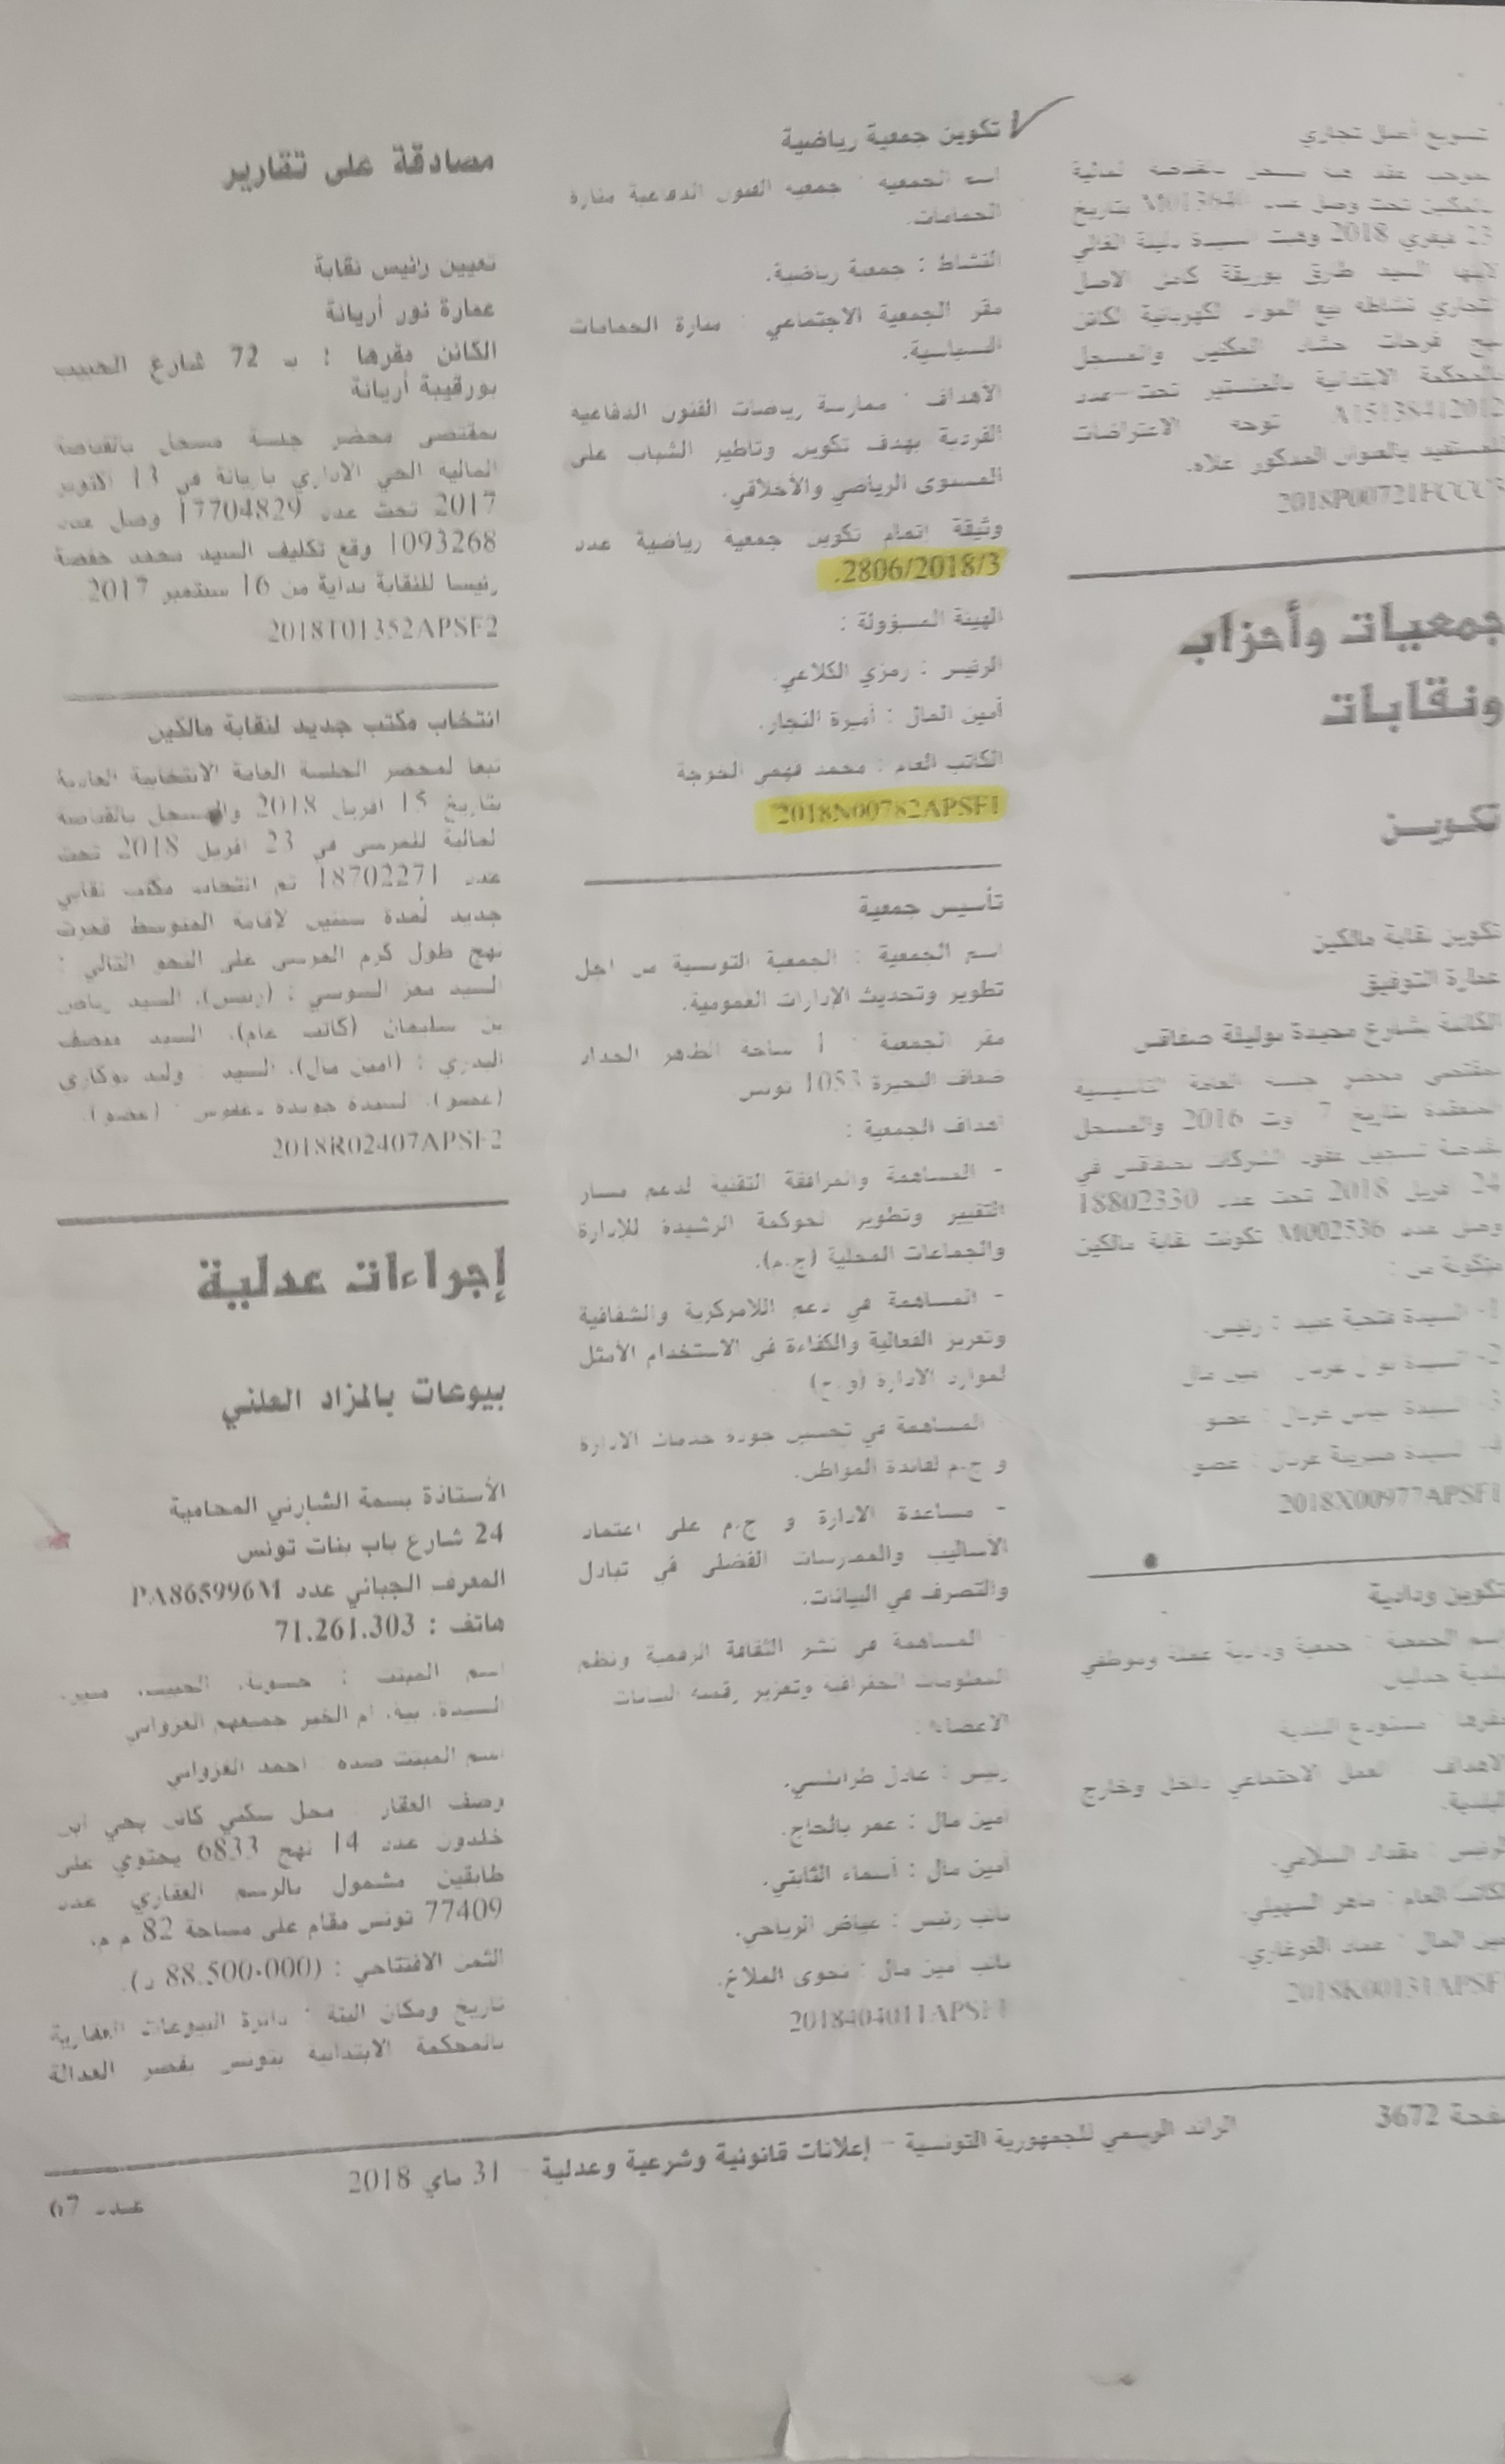 تسويغ أصل تجاري
بموجب عقد
تحت وصل عدد بتاريخ
23 فيفري 2018 وهبت السيدة
السيد طارق بوريقة كامل الاصل
التجاري نشاطه بيع المواد الكهربائية الكائن
والمسجل
بالمحكمة الابتدائية بالمنستير تحت عدد
A15138412012 توجه الاعتراضات
للمستفيد بالعنوان المذكور اعلاه.
جمعيات وأحزاب
ونقابات
تكويـن
تكوين نقابة مالكين
عمارة التوفيق
الكائنة بشارع مجيدة بوليلة صفاقس
بمقتضى محضر جلسة العامة التأسيسية
المنعقدة بتاريخ 7 اوت 2016 والمسجل
بقباضة تسجيل عقود الشركات بصفاقس في
24 افريل 2018 تحت عدد 18802330
وصل عدد M002536 تكونت نقابة مالكين
متكونة من :
1- السيدة فتحية عبيد : رئيس.
2- السيدة امين مال
السيدة : عضو
السيدة : عضو
2018X00977APSF1
تكوين ودادية
اسم الجمعية : جمعية ودادية عملة وموظفي
بلدية
مقرها : مستودع البلدية
الاهداف : العمل الاجتماعي داخل وخارج
البلدية.
الرئيس : مقداد السلامي.
الكاتب العام : ماهر السهيلي.
امين المال : عماد
2018K00131APSF
تكوين جمعية رياضية
اسم الجمعية : جمعية الفنون الدفاعية منارة
الحمامات.
النشاط : جمعية رياضية.
مقر الجمعية الاجتماعي : منارة الحمامات
الأهداف : ممارسة رياضات الفنون الدفاعية
الفردية بهدف تكوين وتاطير الشباب على
المستوى الرياضي والأخلاقي.
وثيقة إتمام تكوين جمعية رياضية عدد
2806/2018/3.
الهيئة المسؤولة :
الرئيس : رمزي الكلاعي.
أمين المال : أميرة النجار.
الكاتب العام : محمد فهمي الخوجة
2018N00782APSF1
تأسيس جمعية
اسم الجمعية : الجمعية التونسية من اجل
تطوير وتحديث الإدارات العمومية.
مقر الجمعية : 1 ساحة الطاهر الحداد
ضفاف البحيرة 1053 تونس
اهداف الجمعية :
- المساهمة والمرافقة التقنية لدعم مسار
التغيير وتطوير الحوكمة الرشيدة للإدارة
والجماعات المحلية (ج.م).
- المساهمة في دعم اللامركزية والشفافية
وتعزيز الفعالية والكفاءة في الاستخدام الأمثل
لموارد الادارة (و ج)
المساهمة في تحسين جودة خدمات الادارة
و ج.م لفائدة المواطن.
- مساعدة الادارة و ج.م على اعتماد
الأساليب والممارسات الفضلى في تبادل
والتصرف في البيانات.
- المساهمة في نشر الثقافة الرقمية ونظم
المعلومات الجغرافية وتعزيز رقمنة البيانات
الاعضاء :
رئيس : عادل طرابلسي.
امين مال : عمر بالحاج.
أمين مال : أسماء الثابتي.
نائب رئيس : عياض الرياحي.
نائب أمين مال : نجوى الملاخ.
2018404011APSF1
مصادقة على تقارير
تعيين رئيس نقابة
عمارة نور أريانة
الكائن مقرها : بـ 72 شارع الحبيب
بورقيبة أريانة
بمقتضى محضر جلسة مسجل بالقباضة
المالية الحي الاداري باريانة في 13 اكتوبر
2017 تحت عدد 17704829 وصل عدد
1093268 وقع تكليف السيد محمد حفصة
رئيسا للنقابة بداية من 16 سبتمبر 2017
2018T01352APSF2
انتخاب مكتب جديد لنقابة مالكين
تبعا لمحضر الجلسة العامة الانتخابية العادية
بتاريخ 15 افريل 2018 والمسجل بالقباضة
المالية المرسى في 23 افريل 2018 تحت
عدد 18702271 تم انتخاب مكتب نقابي
جديد لمدة سنتين لاقامة المتوسط قمرت
نهج طول كرم المرسى على النحو التالي :
السيد معز السوسي : (رئيس)، السيد رياض
بن سليمان (كاتب عام)، السيد منصف
البدري : (امين مال)، السيد : وليد بوكاري
(عضو)، السيدة : (عضو).
2018R02407APSF2
إجراءات عدلية
بيوعات بالمزاد العلني
الأستاذة بسمة الشارني المحامية
24 شارع باب بنات تونس
المعرف الجبائي عدد PA865996M
هاتف : 71.261.303
اسم المبتت : حسونة، الحبيب، منير،
السيدة، بية، ام الخير جميعهم الغزواني
اسم المبتت ضده : احمد الغزواني
وصف العقار : محل سكني كائن بحي ابن
خلدون عدد 14 نهج 6833 يحتوي على
طابقين مشمول بالرسم العقاري عدد
77409 تونس مقام على مساحة 82 م م.
الثمن الافتتاحي : (88.500.000 د).
تاريخ ومكان البتة : دائرة البيوعات العقارية
بالمحكمة الابتدائية بتونس بقصر العدالة
صفحة 3672
الرائد الرسمي للجمهورية التونسية – إعلانات قانونية وشرعية وعدلية – 31 ماي 2018
عـدد 67